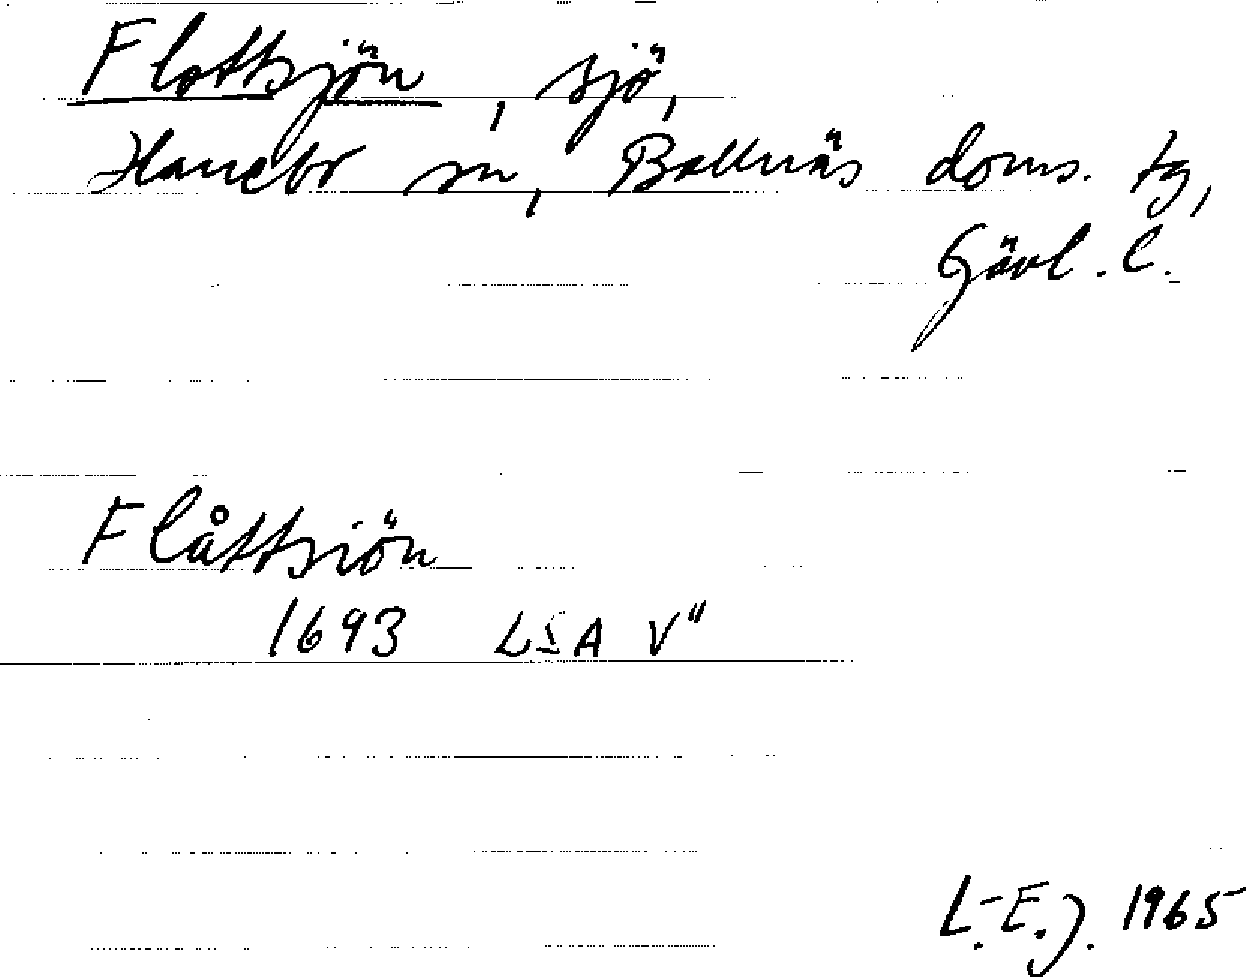 Flottsjön, sjö,
Hanebo sn, Bollnäs doms. tg,
Gävl. l.
Flåttsiön
1693 LSA V"
L.-E. J. 1965